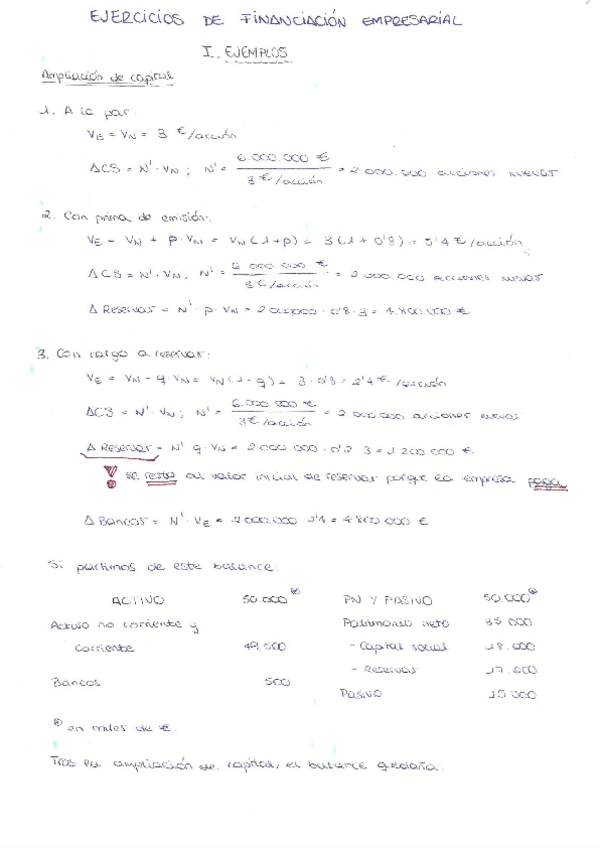 EJERCICIOS DE FINANCIACIÓN EMPRESARIAL
I. EJEMPLOS
Ampliación de capital
1. A la par:
VE = VN = 3 €/acción
ΔCS = N' · VN ; N' = 6.000.000 € / 3 €/acción = 2.000.000 acciones nuevas
2. Con prima de emisión:
VE = VN + p · VN = VN (1 + p) = 3 (1 + 0'8) = 5'4 €/acción
ΔCS = N' · VN, N' = 6.000.000 € / 3 €/acción = 2.000.000 acciones nuevas
Δ Reservas = N' · p · VN = 2.000.000 · 0'8 · 3 = 4.800.000 €
3. Con cargo a reservas:
VE = VN - q · VN = VN (1 - q) = 3 · 0'8 = 2'4 €/acción
ΔCS = N' · VN ; N' = 6.000.000 € / 3 €/acción = 2.000.000 acciones nuevas
Δ Reservas = N' q · VN = 2.000.000 · 0'2 · 3 = 1.200.000 €
! se resta al valor inicial de reservas porque la empresa paga
Δ Bancos = N' · VE = 2.000.000 · 2'4 = 4.800.000 €
Si partimos de este balance:
ACTIVO 50.000 (*) PN Y PASIVO 50.000 (*)
Activo no corriente y Patrimonio neto 35.000
corriente 49.500 - Capital social 18.000
- Reservas 17.000
Bancos 500 Pasivo 15.000
(*) en miles de €.
Tras la ampliación de capital, el balance quedaría: